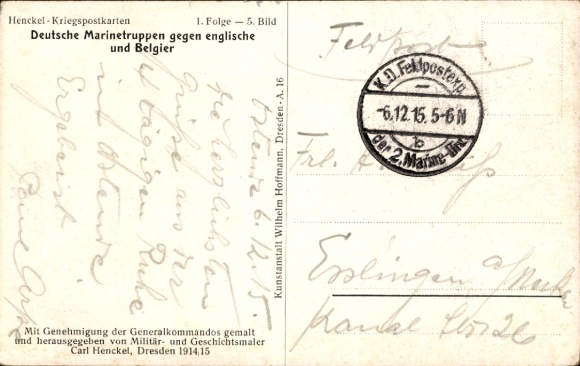 Henckel-Kriegspostkarten 1. Folge — 5. Bild
Deutsche Marinetruppen gegen englische
und Belgier
Ostende 6.12.15.
die herzlichsten
Grüße aus der
tägigen Ruhe
in Ostende
Ergebenst
Mit Genehmigung der Generalkommandos gemalt
und herausgegeben von Militär- und Geschichtsmaler
Carl Henckel, Dresden 1914,15
Kunstanstalt Wilhelm Hoffmann, Dresden-A. 16
Feldpost
K.D. Feldpostexp.
-6.12.15. 5-6 N
b
der 2. Marine-Div.
Frl. A.
Esslingen a/Neckar
Kanal 26